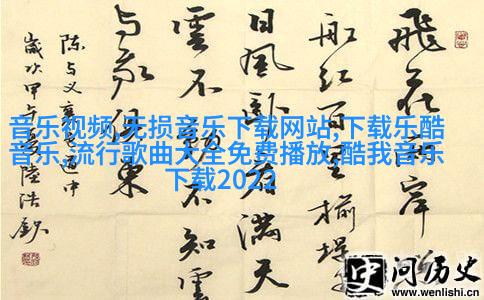 音乐视频,无损音乐下载网站,下载乐酷
音乐,流行歌曲大全免费播放,酷我音乐
下载2022
飛花兩岸
船紅百里榆堤
日風卧看满天
雲不動不知雲
与我俱東
陈与义襄邑道中
歲次甲午
史问历史
www.wenlishi.cn